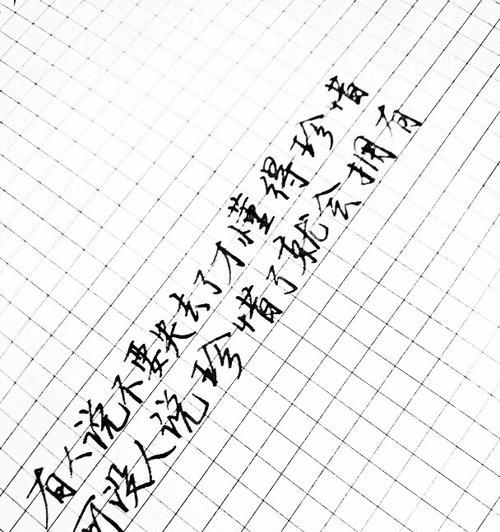 有人说不要失去了才懂得珍惜
可没人说珍惜了就会拥有